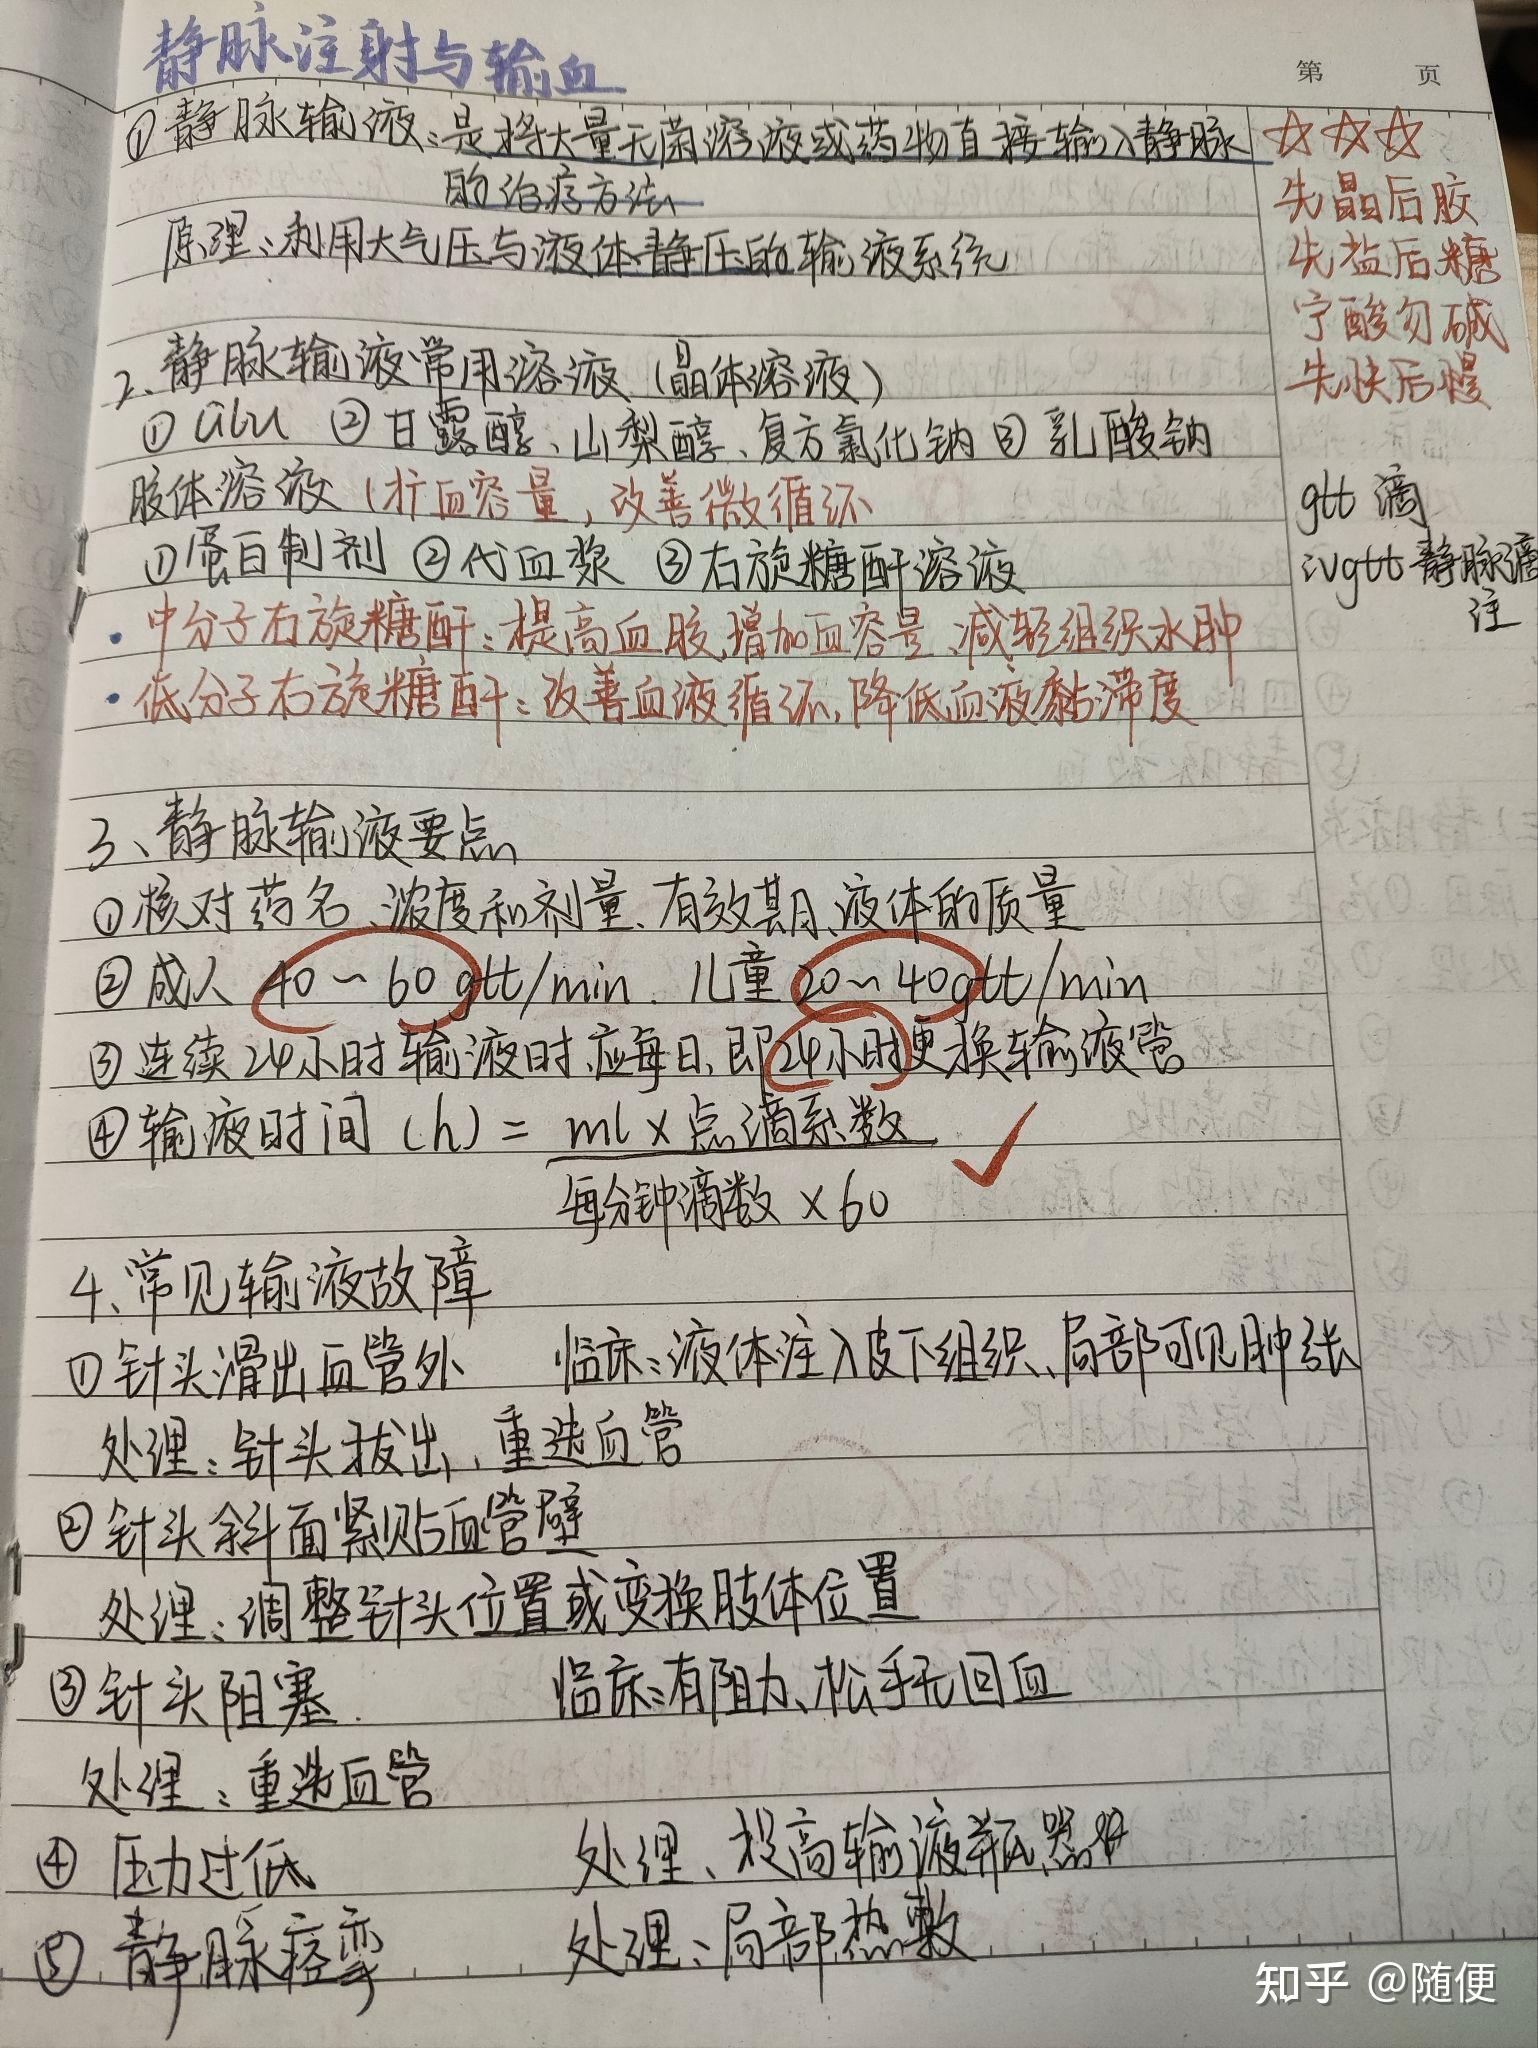 静脉注射与输血
第 页
①静脉输液：是将大量无菌溶液或药物直接输入静脉
的治疗方法
原理：利用大气压与液体静压的输液系统
☆☆☆
先晶后胶
先盐后糖
宁酸勿碱
先快后慢
2、静脉输液常用溶液（晶体溶液）
①Glu ②甘露醇、山梨醇、复方氯化钠 ③乳酸钠
胶体溶液（扩血容量，改善微循环
①蛋白制剂 ②代血浆 ③右旋糖酐溶液
gtt 滴
ivgtt 静脉滴
注
·中分子右旋糖酐：提高血胶,增加血容量、减轻组织水肿
·低分子右旋糖酐：改善血液循环,降低血液黏滞度
3、静脉输液要点
①核对药名、浓度和剂量、有效期、液体的质量
②成人 40~60gtt/min. 儿童 20~40gtt/min
③连续24小时输液时,应每日、即24小时更换输液管
④输液时间（h）= ml×点滴系数
每分钟滴数×60
4、常见输液故障
①针头滑出血管外 临床：液体注入皮下组织、局部可见肿张
处理：针头拔出，重选血管
②针头斜面紧贴血管壁
处理：调整针头位置或变换肢体位置
③针头阻塞. 临床：有阻力、松手无回血
处理：重选血管
④压力过低 处理、提高输液瓶
⑤静脉痉挛 处理：局部热敷
知乎 @随便